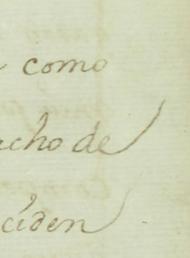 como
acho de
ciden